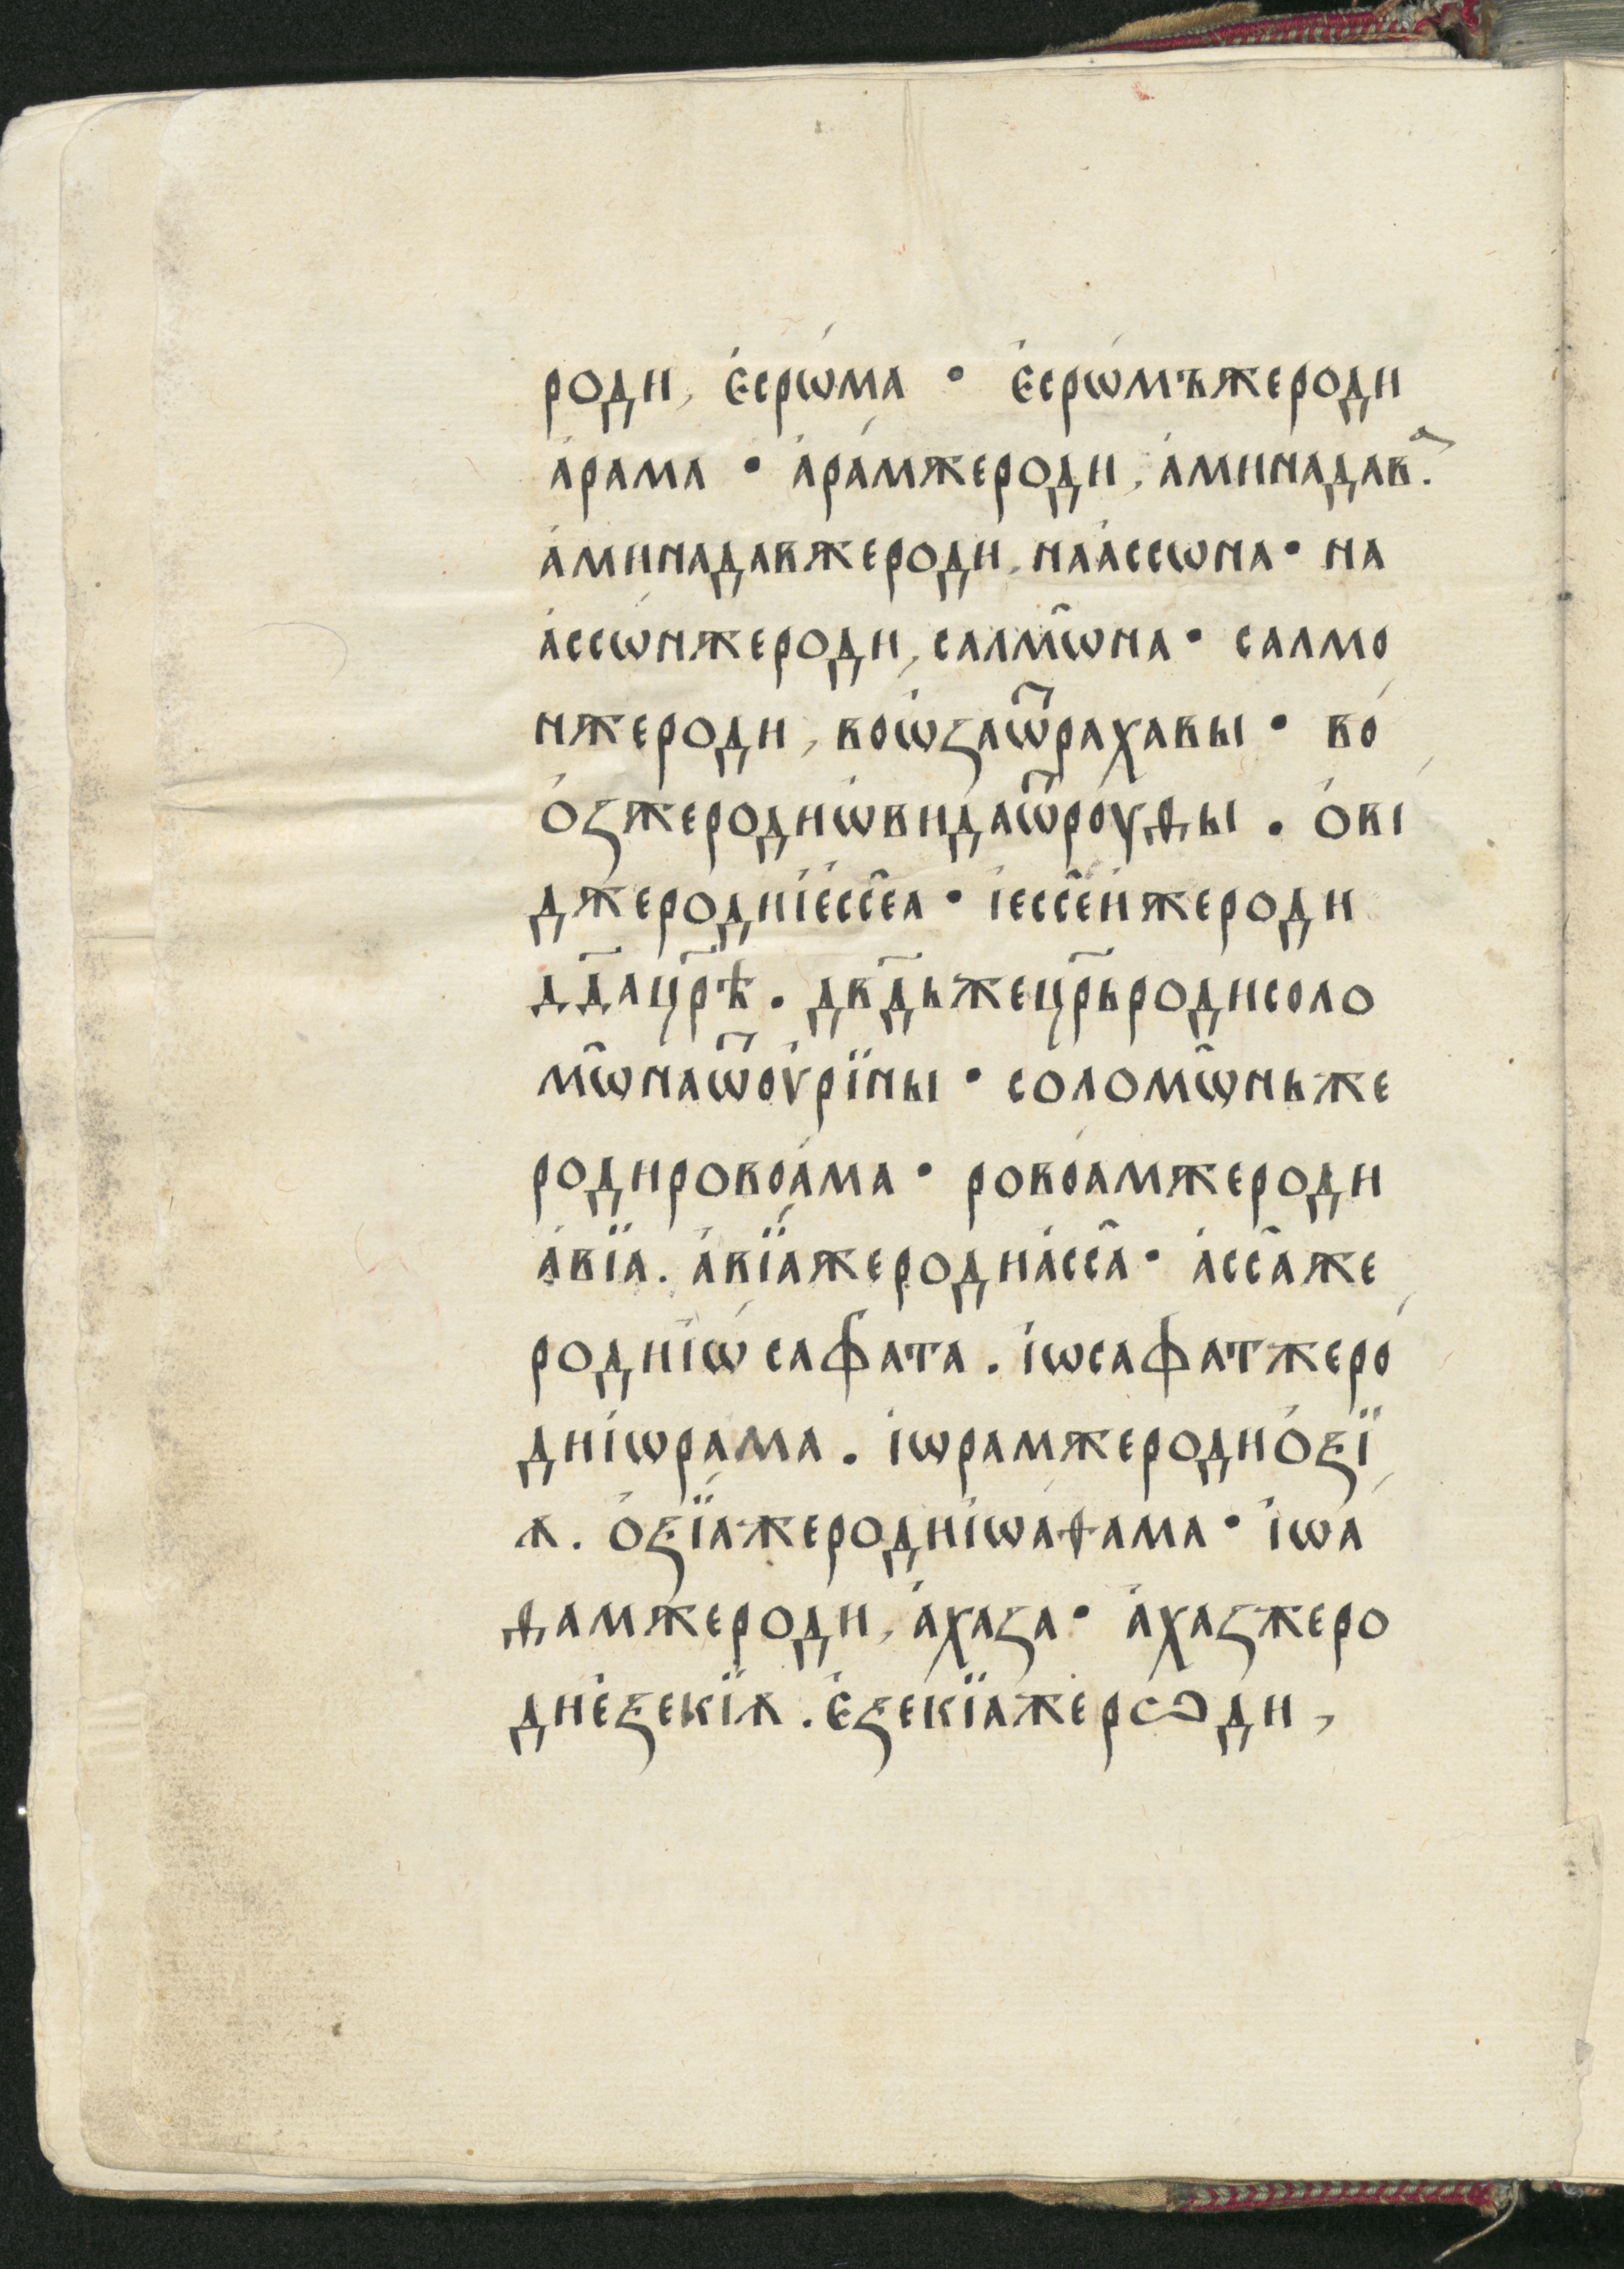 роди, є҆срѡ́ма • є҆срѡ́мъжероди
а҆рама • а҆ра́мжероди, а҆минадава.
а҆минадавжероди, наа҆ссѡна • на
а҆ссѡ́нжероди, салмѡ̑на • салмо
нжероди, воѡ҆ꙁаѿрахавы • во
о҆ꙁжеродиѡ҆видаѿроуѳы . о҆ві
джеродиіє҆ссе̑а • і҆ессе̑ижероди
дв҃дацр҃ѣ . дв҃дьжецр҃ьродисоло
мѡ̑наѿоу҆рїины • соломѡ̑ньже
родировоа́ма • ровоа́мжероди
а҆вїа . а҆вїа́жеродиа҆сса̑ • а҆сса̑же
родиі҆ѡсафата . і҆ѡсафатжеро
диі҆ѡрама . і҆ѡрамжеродио҆ꙁї
ѧ . о҆ꙁїажеродиі҆ѡаѳама • і҆ѡа
ѳамжероди, а҆хаꙁа • а҆хаꙁжеро
диє҆ꙁекїѧ . є҆ꙁекїажероди,